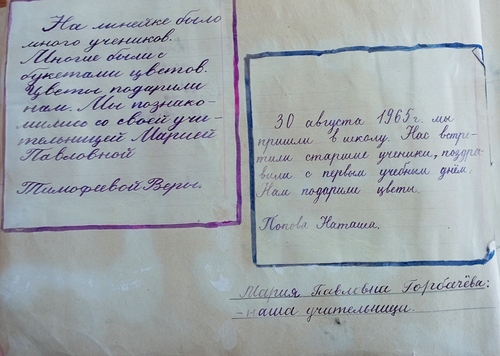 На линейке было
много учеников.
Многие были с
букетами цветов.
Цветы подарили
нам. Мы познако-
мились со своей учи-
тельницей Марией
Павловной
Тимофеевой Веры.
30 августа 1965 г. мы
пришли в школу. Нас встре-
тили старшие ученики, поздра-
вили с первым учебным днём.
Нам подарили цветы.
Попова Наташа.
Мария Павловна Горбачёва:
-наша учительница.